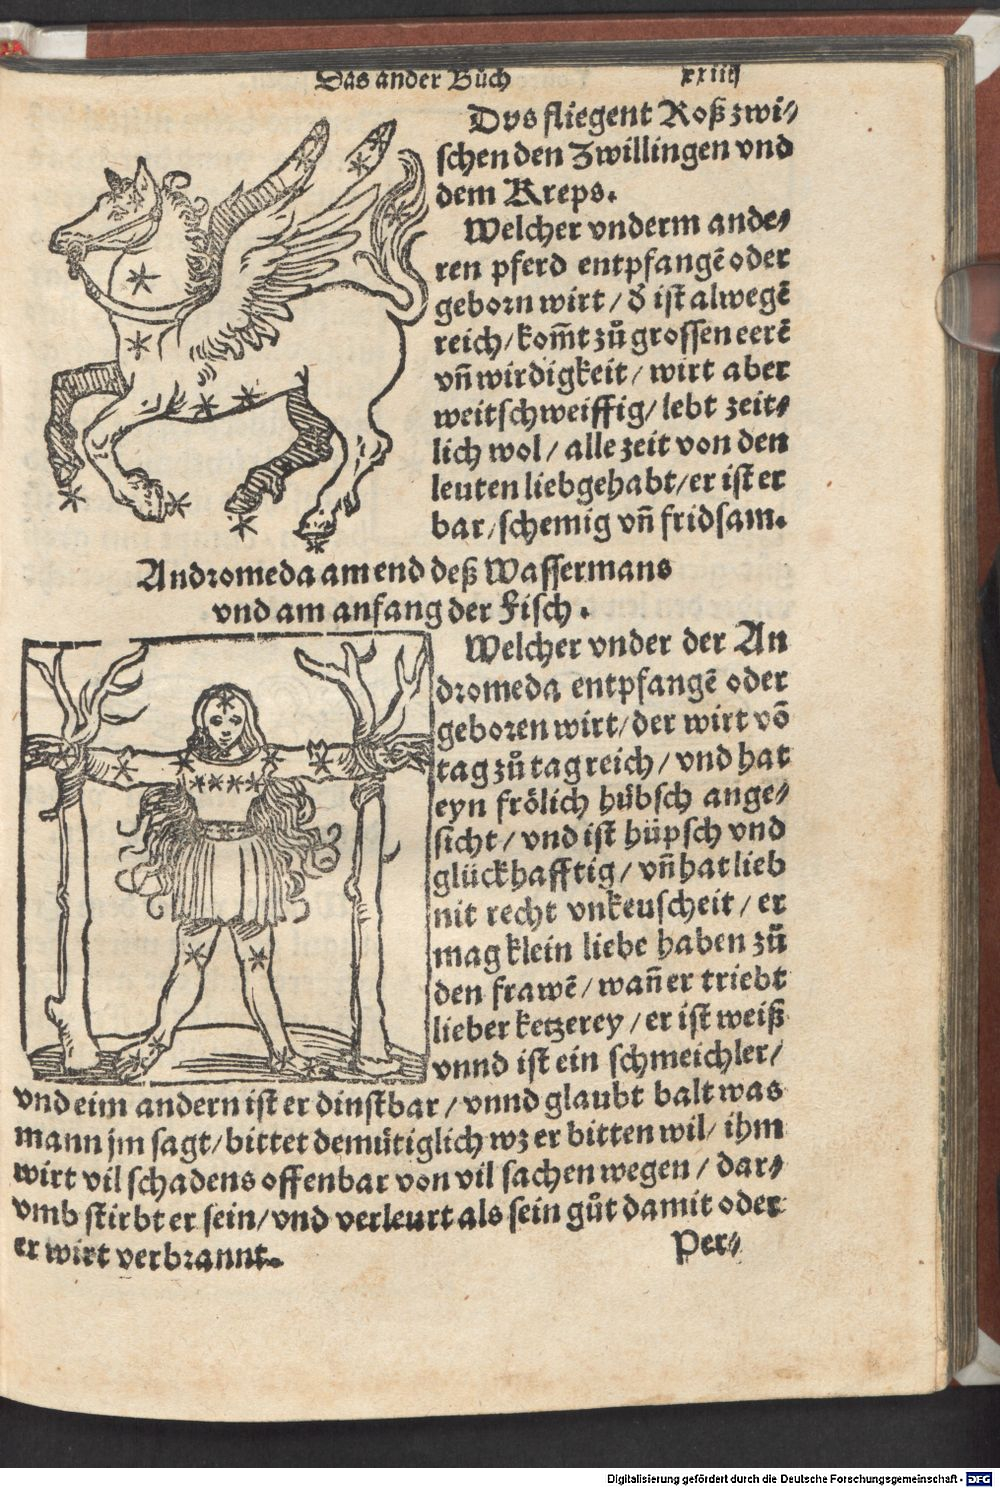 Das ander Bůch xxiiij
Dys fliegent Roß zwi⸗
schen den Zwillingen vnd
dem Kreps.
Welcher vnderm ande⸗
ren pferd entpfangē oder
geborn wirt / d̕ ist alwegē
reich / kom̄t zů grossen eerē
vn̄ wirdigkeit / wirt aber
weitschweiffig / lebt zeit⸗
lich wol / alle zeit von den
leuten liebgehabt / er ist er
bar / schemig vn̄ fridsam.
Andromeda am end deß Wassermans
vnd am anfang der Fisch.
Welcher vnder der An
dromeda entpfangē oder
geboren wirt / der wirt vō
tag zů tag reich / vnd hat
eyn frölich hübsch ange⸗
sicht / vnd ist hüpsch vnd
glückhafftig / vn̄ hat lieb
nit recht vnkeuscheit / er
mag klein liebe haben zů
den frawē / wan̄ er triebt
lieber ketzerey / er ist weiß
vnnd ist ein schmeichler /
vnd eim andern ist er dinstbar / vnnd glaubt balt was
mann jm sagt / bittet demütiglich wz er bitten wil / ihm
wirt vil schadens offenbar von vil sachen wegen / dar⸗
vmb stirbt er sein / vnd verleurt als sein gůt damit oder
er wirt verbrannt.
Per⸗
Digitalisierung gefördert durch die Deutsche Forschungsgemeinschaft - DFG